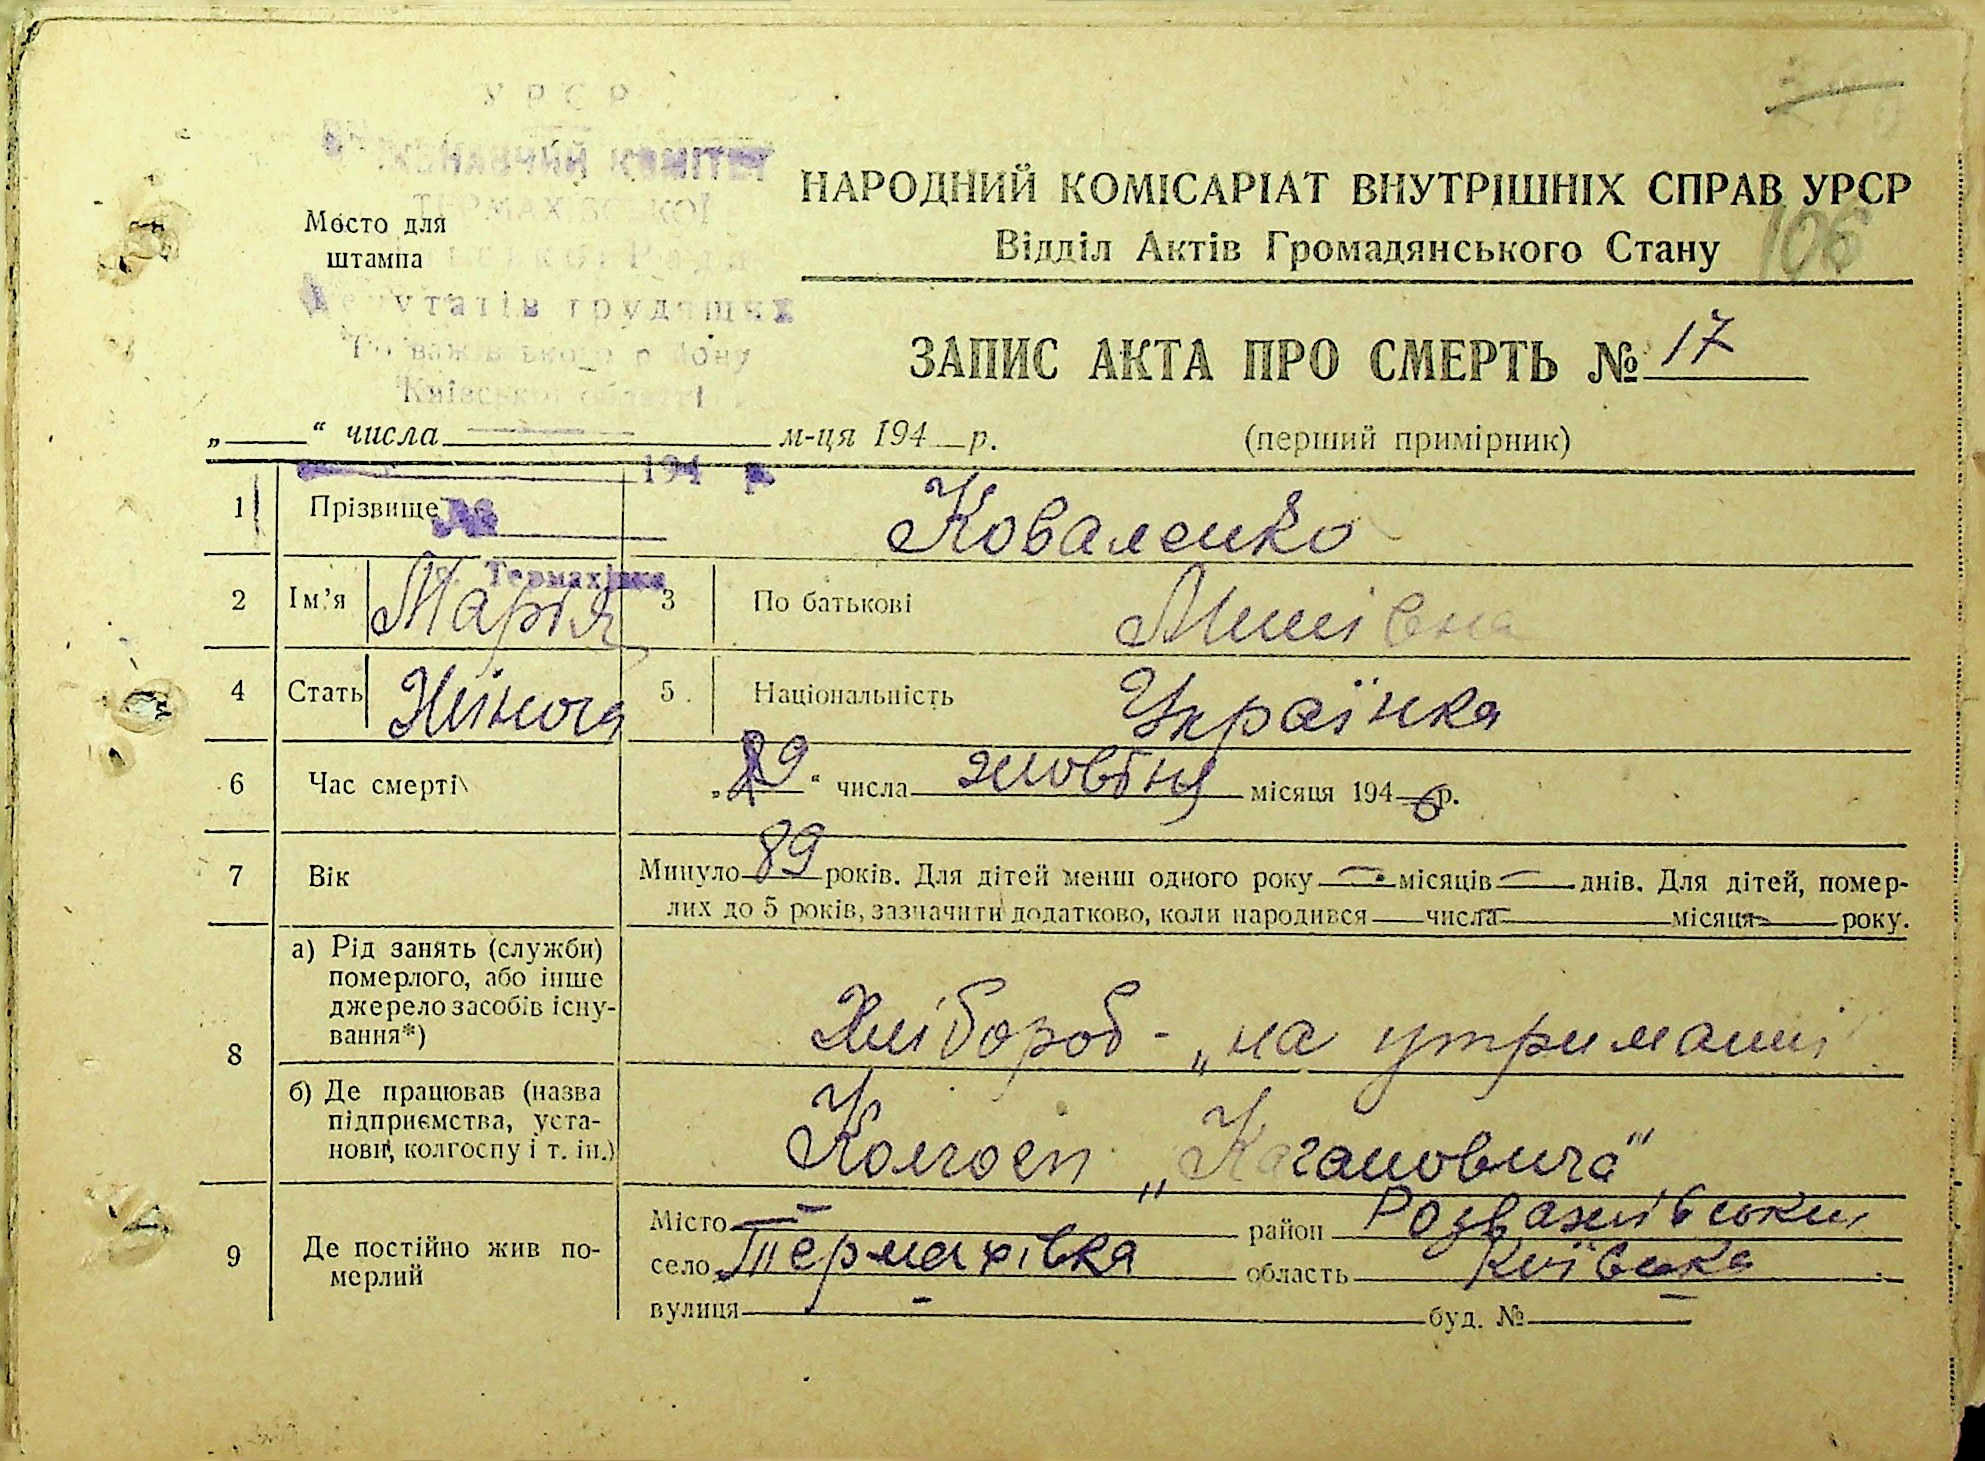 УРСР
ВИКОНАВЧИЙ КОМІТЕТ
Место для
штампа
Депутатів трудящих
Київської області
194 р.
№
с. Термахівка
НАРОДНИЙ КОМІСАРІАТ ВНУТРІШНІХ СПРАВ УРСР
Відділ Актів Громадянського Стану
106
ЗАПИС АКТА ПРО СМЕРТЬ № 17
„ “ числа м-ця 194 р. (перший примірник)
1 Прізвище Коваленко
2 Ім'я Марія 3 По батькові
4 Стать Жіноча 5 Національність Українка
6 Час смерті „29“ числа жовтня місяця 1946 р.
7 Вік Минуло 89 років. Для дітей менш одного року — місяців — днів. Для дітей, помер-
лих до 5 років, зазначити додатково, коли народився — числа — місяця — року.
8 а) Рід занять (служби)
померлого, або інше
джерело засобів існу-
вання*)
Хлібороб - „на утриманні
б) Де працював (назва
підприємства, уста-
нови, колгоспу і т. ін.)
Колгосп „Кагановича“
9 Де постійно жив по-
мерлий
Місто — район Розважівський
село Термахівка область Київська
вулиця — буд. № —